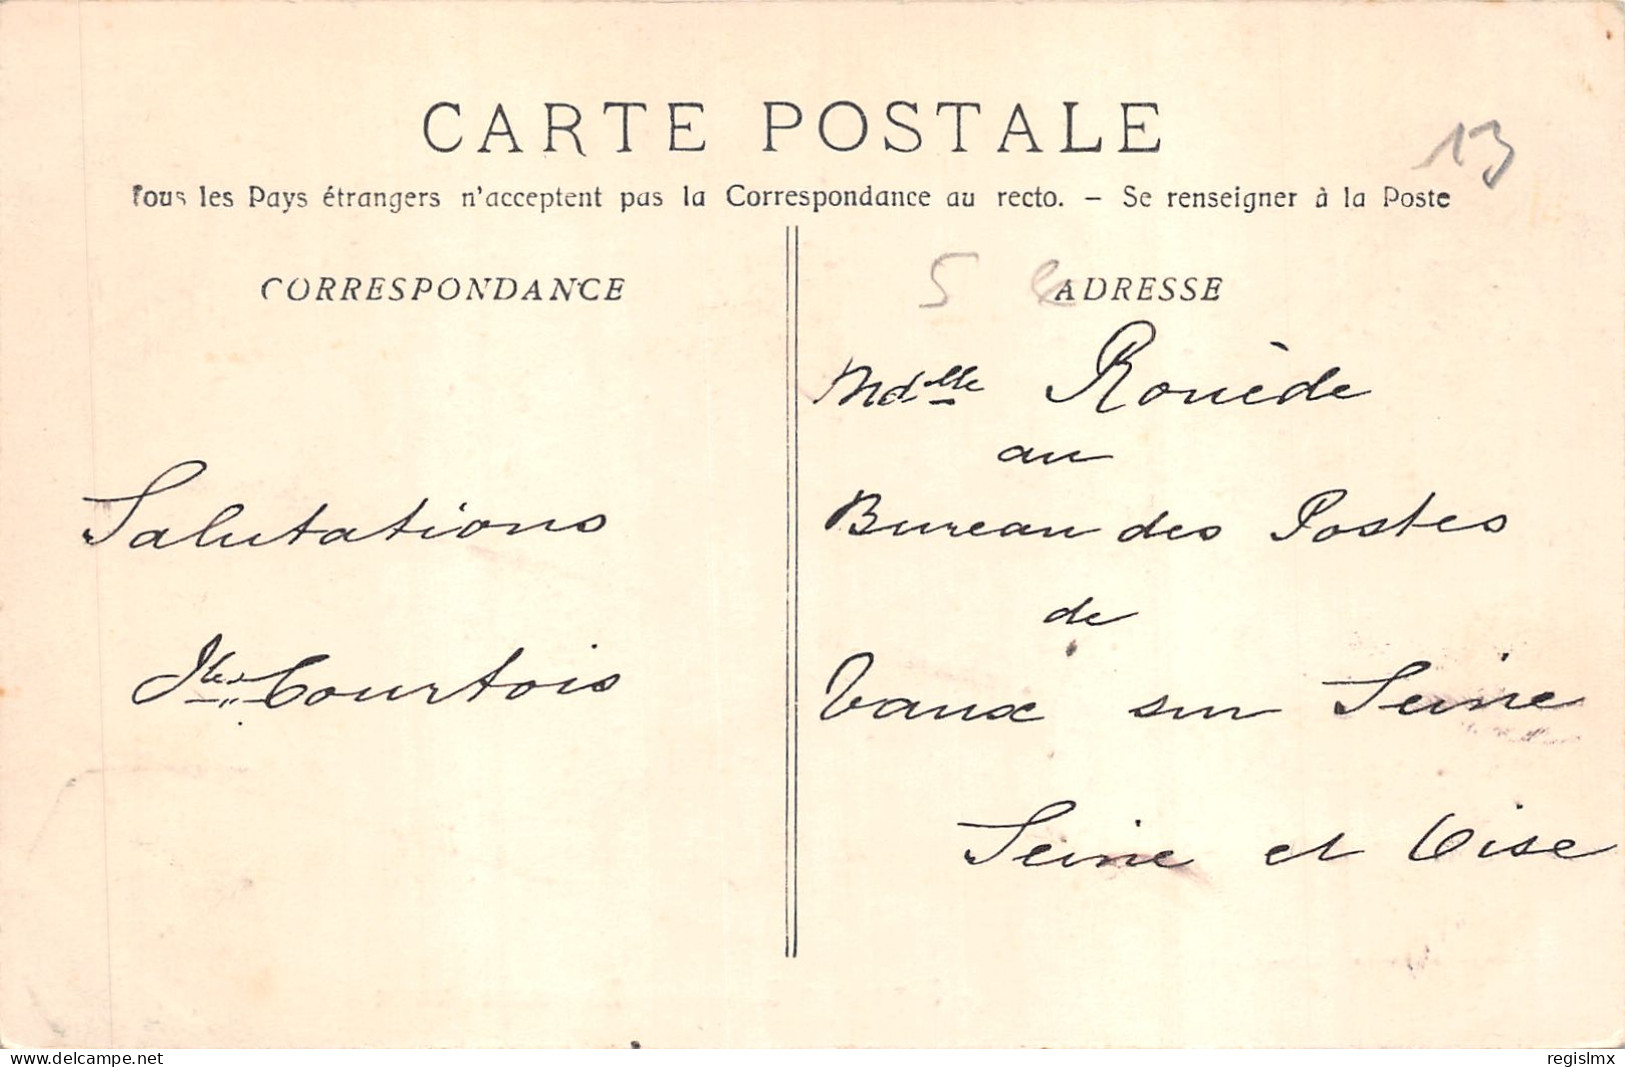 CARTE POSTALE
13
Tous les Pays étrangers n'acceptent pas la Correspondance au recto. – Se renseigner à la Poste
CORRESPONDANCE
Salutations
Courtois
5 ADRESSE
Mdelle Rouède
au
Bureau des Postes
de
Vaux sur Seine
Seine et Oise
www.delcampe.net
regislmx